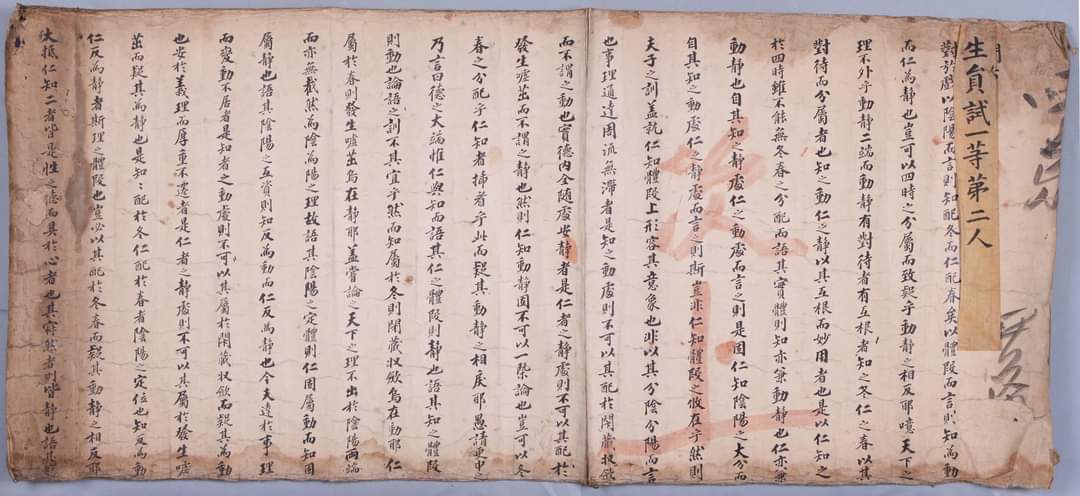 生員試一等第二人
對於戲以陰陽而言則知配冬而仁配春矣以體段而言則知爲動
而仁爲靜也豈可以四時之分屬而致疑乎動靜之相反耶噫天下之
理不外乎動靜二端而動靜有對待者有互根者知之冬仁之春以其
對待而分屬者也知之動仁之靜以其互根而妙用者也是以仁知之
於四時雖不能無冬春之分配而語其實體則知亦兼動靜也仁亦兼
動靜也自其知之靜處仁之動處而言之則是固仁知陰陽之大分而
自其知之動處仁之靜處而言之則斯豈非仁知體段之攸在乎然則
夫子之訓盖就仁知體段上形容其意象也非以其分陰分陽而言
也事理通達周流無滯者是知之動處則不可以其配於閉藏收斂
而不謂之動也實德內全隨處安靜者是仁者之靜處則不可以其配於
發生噓茁而不謂之靜也然則仁知動靜固不可以一槩論也豈可以冬
春之分配乎仁知者揷着乎此而疑其動靜之相戾耶愚請更申之
乃言曰德之大端惟仁與知而語其仁之體段則靜也語其知之體段
則動也論語之訓不其宜乎然而知屬於冬則閉藏收斂烏在動耶仁
屬於春則發生噓茁烏在靜耶盖嘗論之天下之理不出於陰陽兩端
而亦無截然爲陰爲陽之理故語其陰陽之定體則仁固屬動而知固
屬靜也語其陰陽之互資則知反爲動而仁反爲靜也今夫達於事理
而變動不居者是知者之動處則不可以其屬於閉藏收斂而疑其爲動
也安於義理而厚重不遷者是仁者之靜處則不可以其屬於發生噓
茁而疑其爲靜也是知之配於冬仁配於春者陰陽之定位也知反爲動
仁反爲靜者斯理之體段也豈必以其配於冬春而疑其動靜之相反耶
大抵仁知二者皆是性之德而具於心者也其寂然者則皆靜也語其